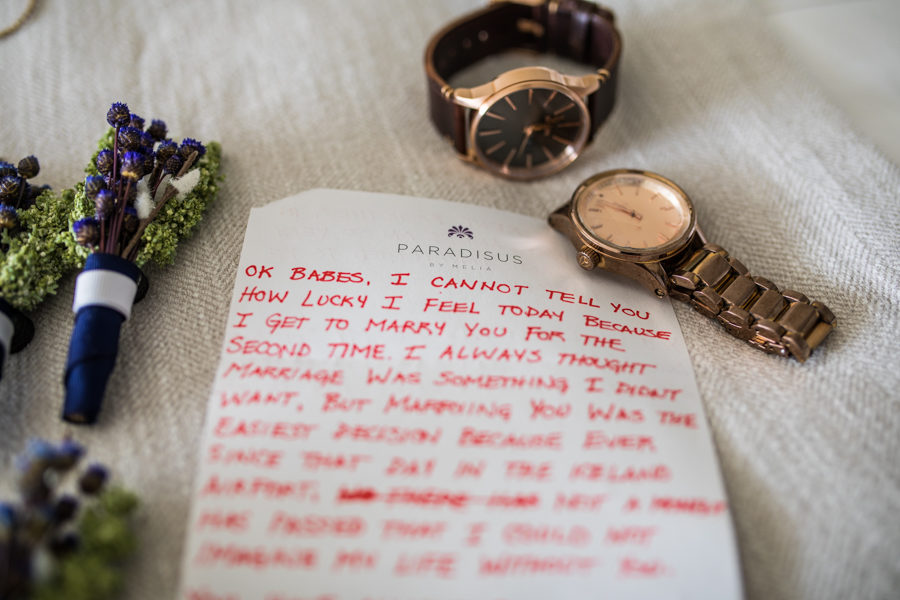 PARADISUS
BY MELIÁ
OK BABES, I CANNOT TELL YOU
HOW LUCKY I FEEL TODAY BECAUSE
I GET TO MARRY YOU FOR THE
SECOND TIME. I ALWAYS THOUGHT
MARRIAGE WAS SOMETHING I DIDN'T
WANT, BUT MARRYING YOU WAS THE
EASIEST DECISION BECAUSE EVER
SINCE THAT DAY IN THE
AIRPORT, NOT A
HAS PASSED THAT I COULD NOT
IMAGINE MY LIFE WITHOUT